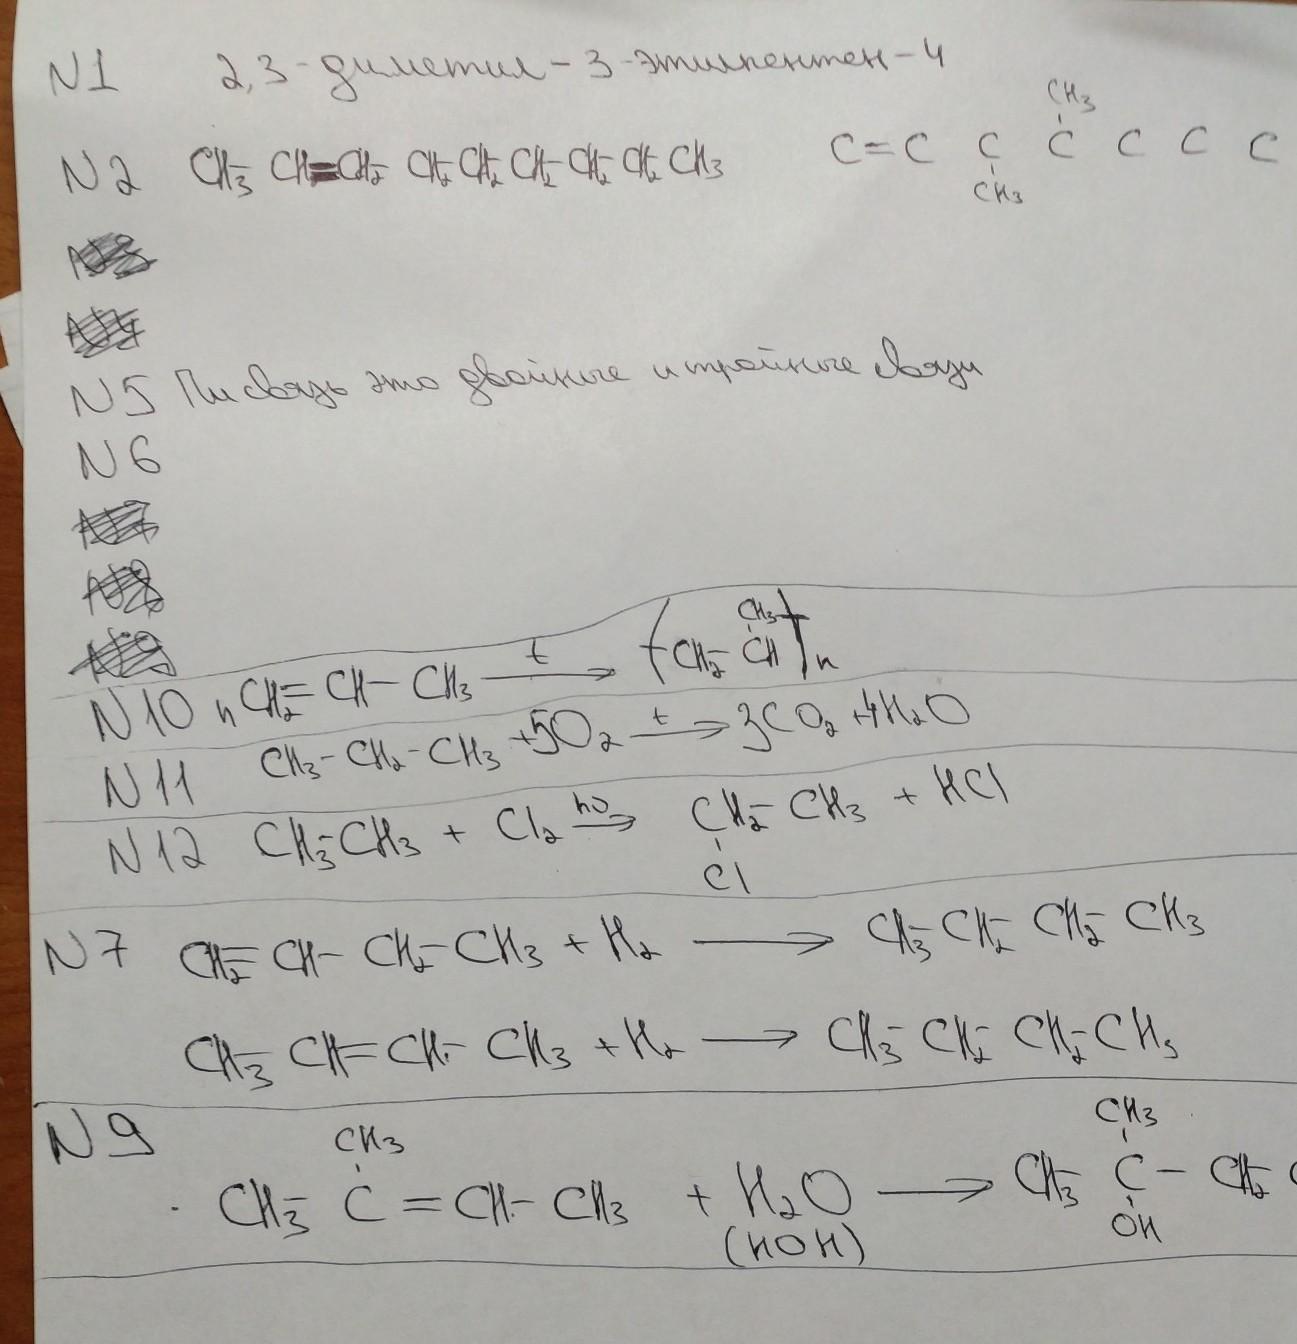 N1 2,3-диметил-3-этилпентен-4
CH3
N2 CH3- CH=CH2 CH2 CH2 CH2 CH2 CH2 CH3 C=C C C C C C
CH3
N5 Пи связь это двойные и тройные связи
N6
CH3
N10 nCH2=CH-CH3 t→ (CH2-CH)n
N11 CH3-CH2-CH3 +5O2 t→ 3CO2+4H2O
N12 CH3-CH3 + Cl2 hν→ CH2-CH3 + HCl
Cl
N7 CH2=CH-CH2-CH3 + H2 → CH3-CH2-CH2-CH3
CH3-CH=CH-CH3 + H2 → CH3-CH2-CH2-CH3
N9 CH3 CH3
CH3-C=CH-CH3 + H2O → CH3-C-CH2
(HOH) OH